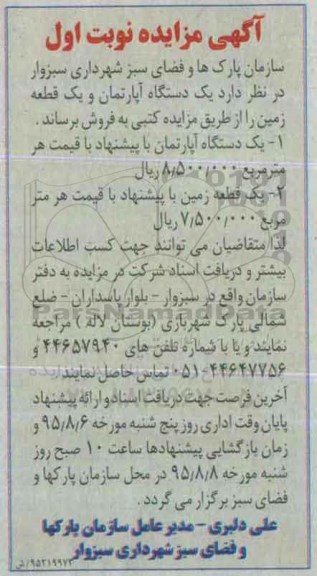 آگهی مزایده نوبت اول
سازمان پارک ها و فضای سبز شهرداری سبزوار
در نظر دارد یک دستگاه آپارتمان و یک قطعه
زمین را از طریق مزایده کتبی به فروش برساند .
۱- یک دستگاه آپارتمان با پیشنهاد با قیمت هر
مترمربع ۸/۵۰۰/۰۰۰ ریال
۲- یک قطعه زمین با پیشنهاد با قیمت هر متر
مربع ۷/۵۰۰/۰۰۰ ریال
لذا متقاضیان می توانند جهت کسب اطلاعات
بیشتر و دریافت اسناد شرکت در مزایده به دفتر
سازمان واقع در سبزوار - بلوار پاسداران - ضلع
شمالی پارک شهربازی (بوستان لاله ) مراجعه
نمایند و یا با شماره تلفن های ۴۴۶۵۷۹۴۰ و
۴۴۶۴۷۷۵۶-۰۵۱ تماس حاصل نمایند
آخرین فرصت جهت دریافت اسناد و ارائه پیشنهاد
پایان وقت اداری روز پنج شنبه مورخه ۹۵/۸/۶ و
زمان بازگشایی پیشنهادها ساعت ۱۰ صبح روز
شنبه مورخه ۹۵/۸/۸ در محل سازمان پارکها و
فضای سبز برگزار می گردد .
علی دلبری - مدیر عامل سازمان پارکها
و فضای سبز شهرداری سبزوار
۹۵۲۱۹۹۷۲/ش
ParsNamadData